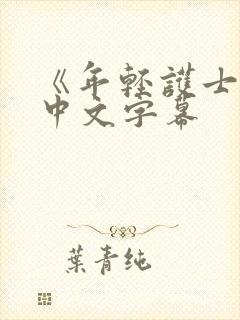 《年輕護士
中文字幕
葉青純